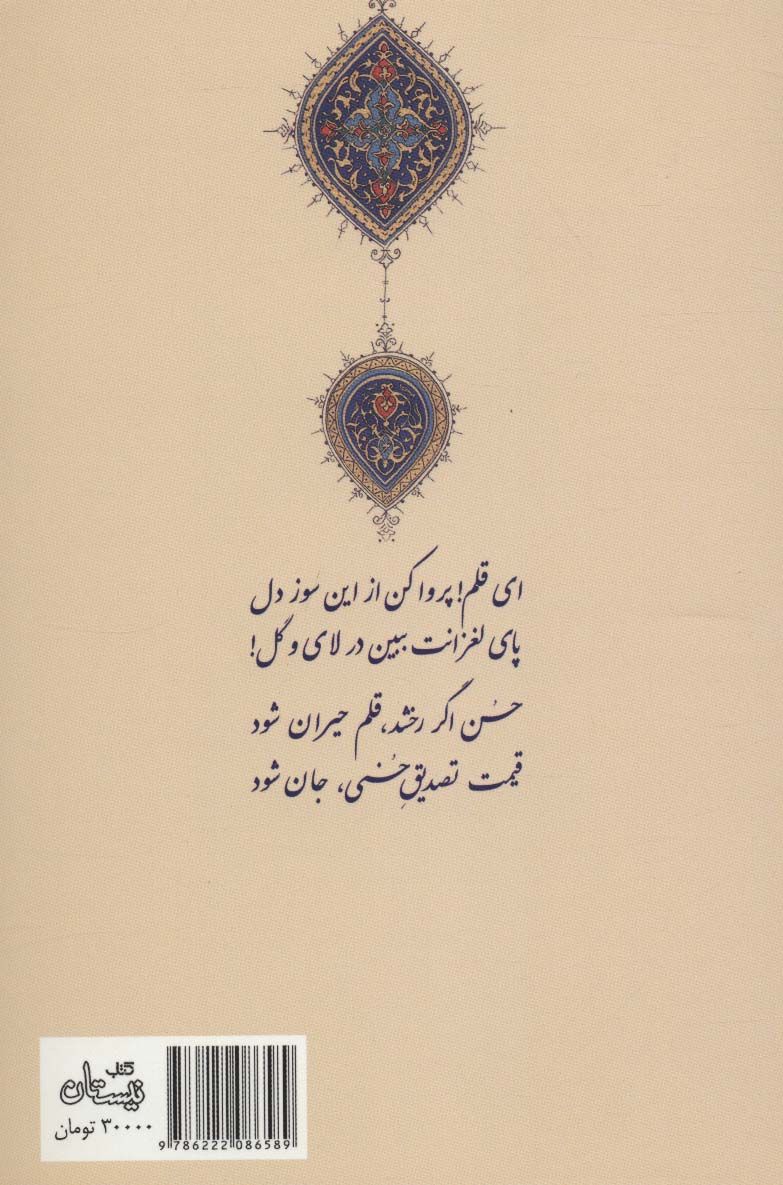 ای قلم! پروا کن از این سوز دل
پای لغزانت ببین در لای و گل!
حُسن اگر رخشد، قلم حیران شود
قیمت تصدیقِ حُسنی، جان شود
کتاب
نیستان
۳۰۰۰۰ تومان
9 786222 086589